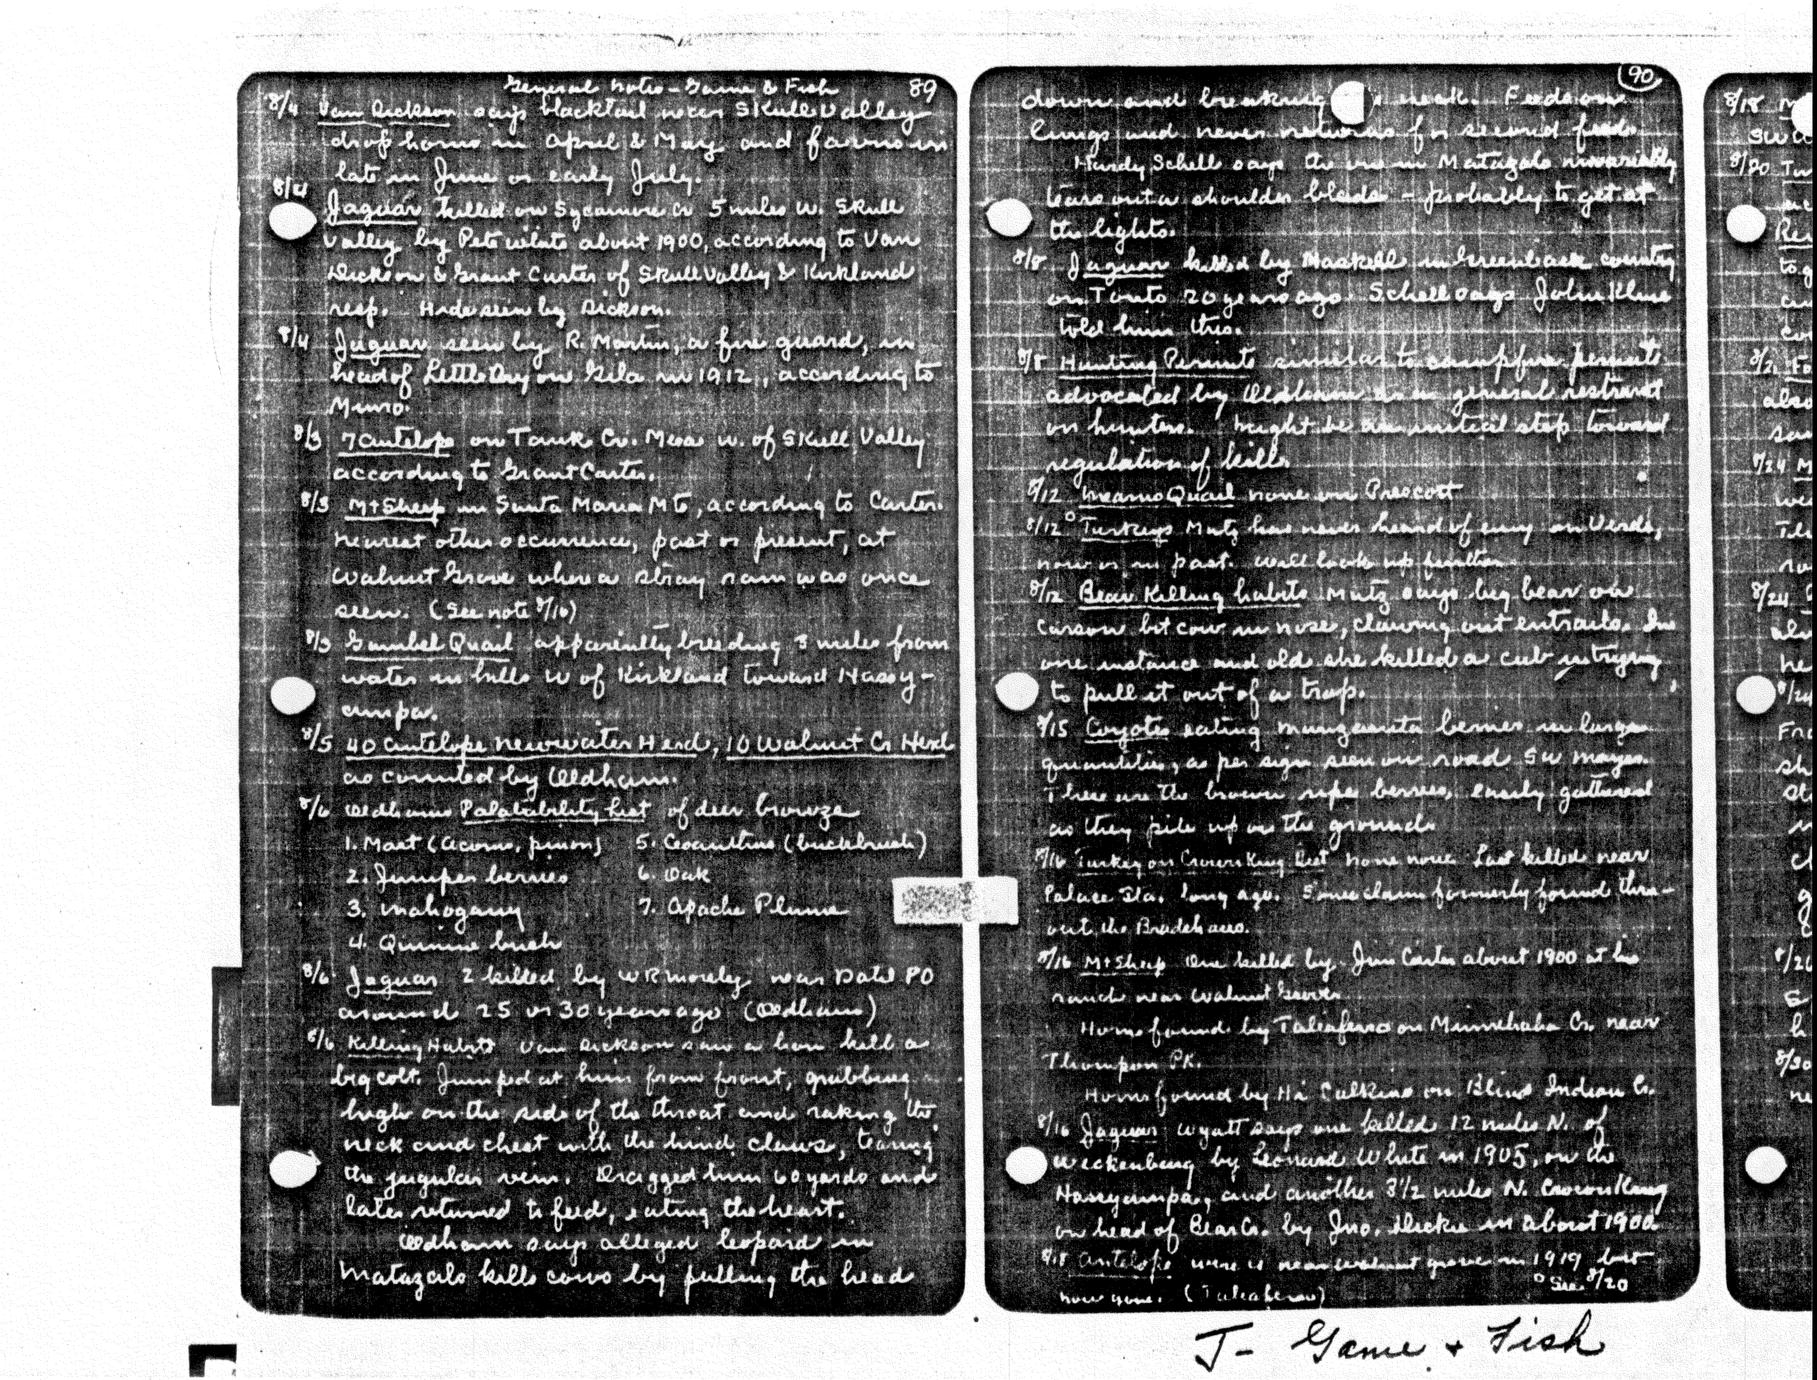 General Notes - Game & Fish 89
8/4 Van Dickson says blacktail near Skull Valley
drop horns in April & May and fawns in
late in June or early July.
8/4 Jaguar killed on Sycamore Cr 5 miles W. Skull
Valley by Pete White about 1900, according to Van
Dickson & Grant Carter of Skull Valley & Kirkland
resp. Hide seen by Dickson.
8/4 Jaguar seen by R. Martin, a fire guard, in
head of Little Dry on Gila in 1912, according to
Munro.
8/3 7 antelope on Tank Cr. Mesa W. of Skull Valley
according to Grant Carter.
8/3 Mt Sheep in Santa Maria Mts, according to Carter.
Nearest other occurrence, past or present, at
Walnut Grove where a stray ram was once
seen. (See note 8/16)
8/3 Gambel Quail apparently breeding 3 miles from
water in hills W of Kirkland toward Hassy-
ampa.
8/5 40 antelope Newwater Herd, 10 Walnut Cr Herd
as counted by Oldham.
8/6 Oldhams Palatability List of deer browze
1. Mast (acorns, pinon) 5. Ceoanthus (buckbrush)
2. Juniper berries 6. Oak
3. Mahogany 7. Apache Plume
4. Quinine bush
8/6 Jaguar 2 killed by W R Morely near Datil PO
around 25 or 30 years ago (Oldham)
8/6 Killing Habits Van Dickson saw a lion kill a
big colt. Jumped at him from front, grabbing
high on the side of the throat and raking the
neck and chest with the hind claws, tearing
the jugular vein. Dragged him 60 yards and
later returned to feed, eating the heart.
Oldham says alleged leopard in
Matazals kills cows by pulling the head
90
down and breaking neck. Feeds on
lungs and never returns for second feed.
Hardy Schell says the one in Matazals invariably
tears out a shoulder blade - probably to get at
the lights.
8/8 Jaguar killed by Haskell in Greenback country
on Tonto 20 years ago. Schell says John Kline
told him this.
8/8 Hunting Permits similar to campfire permits
advocated by Oldham as a general restraint
on hunters. Might be an initial step toward
regulation of kill.
8/12 Mearns Quail none on Prescott
8/12 Turkeys Mutz has never heard of any on Verde,
now or in past. Will look up further.
8/12 Bear Killing habits Mutz says big bear on
Carson bit cow in nose, clawing out entrails. In
one instance and old she killed a cub in trying
to pull it out of a trap.
8/15 Coyotes eating manzanita berries in large
quantities, as per sign seen on road SW Mayer.
These are the brown ripe berries, easily gathered
as they pile up on the ground.
8/16 Turkey on Crown King Dist none now Last killed near
Palace Sta. long ago. Some claim formerly found thru-
out the Bradshaws.
8/16 Mt Sheep One killed by Jim Carter about 1900 at his
ranch near Walnut Grove.
Horns found by Taliaferro on Minnehaha Cr. near
Thompson Pk.
Horns found by Hi Calkins on Blind Indian Cr.
8/16 Jaguar Wyatt says one killed 12 miles N. of
Weckenburg by Leonard White in 1905, on the
Hassyampa, and another 3 1/2 miles N. Crown King
on head of Bear Cr. by Jno. Dickie in about 1900
8/18 Antelope were near Walnut Grove in 1919 but
now gone. (Taliaferro) See 8/20
8/18
8/20
8/24
8/24
8/30
J - Game & Fish